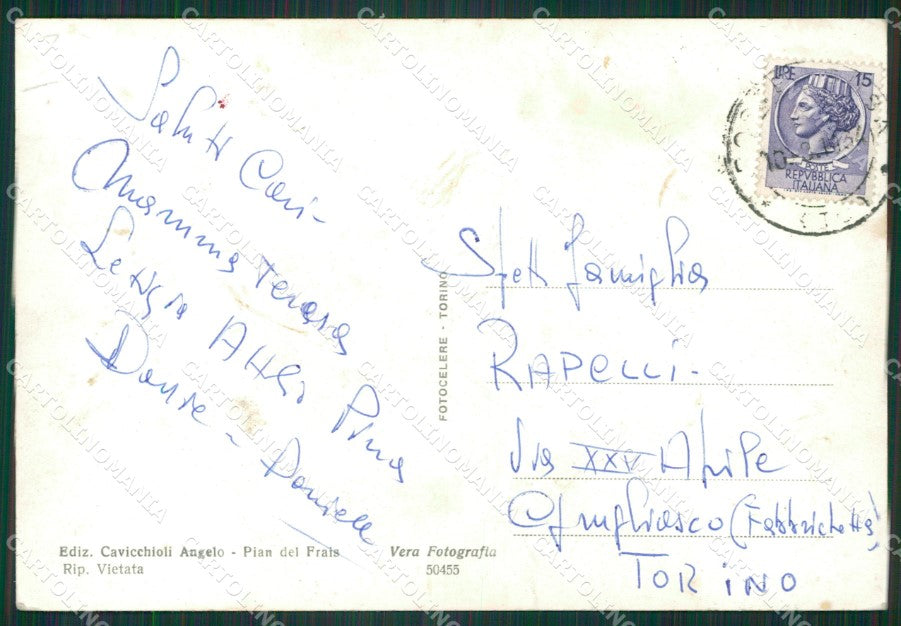 Saluti Cari -
Mamma Teresa
Letizia Attilio Pina
Dante - Daniele
Spett Famiglia
RAPELLI -
Via XXV Aprile
Grugliasco (Fabbrichetta)
TORINO
FOTOCELERE - TORINO
LIRE 15
POSTE
REPVBBLICA
ITALIANA
Ediz. Cavicchioli Angelo - Pian del Frais
Rip. Vietata
Vera Fotografia
50455
CARTOLINOMANIA